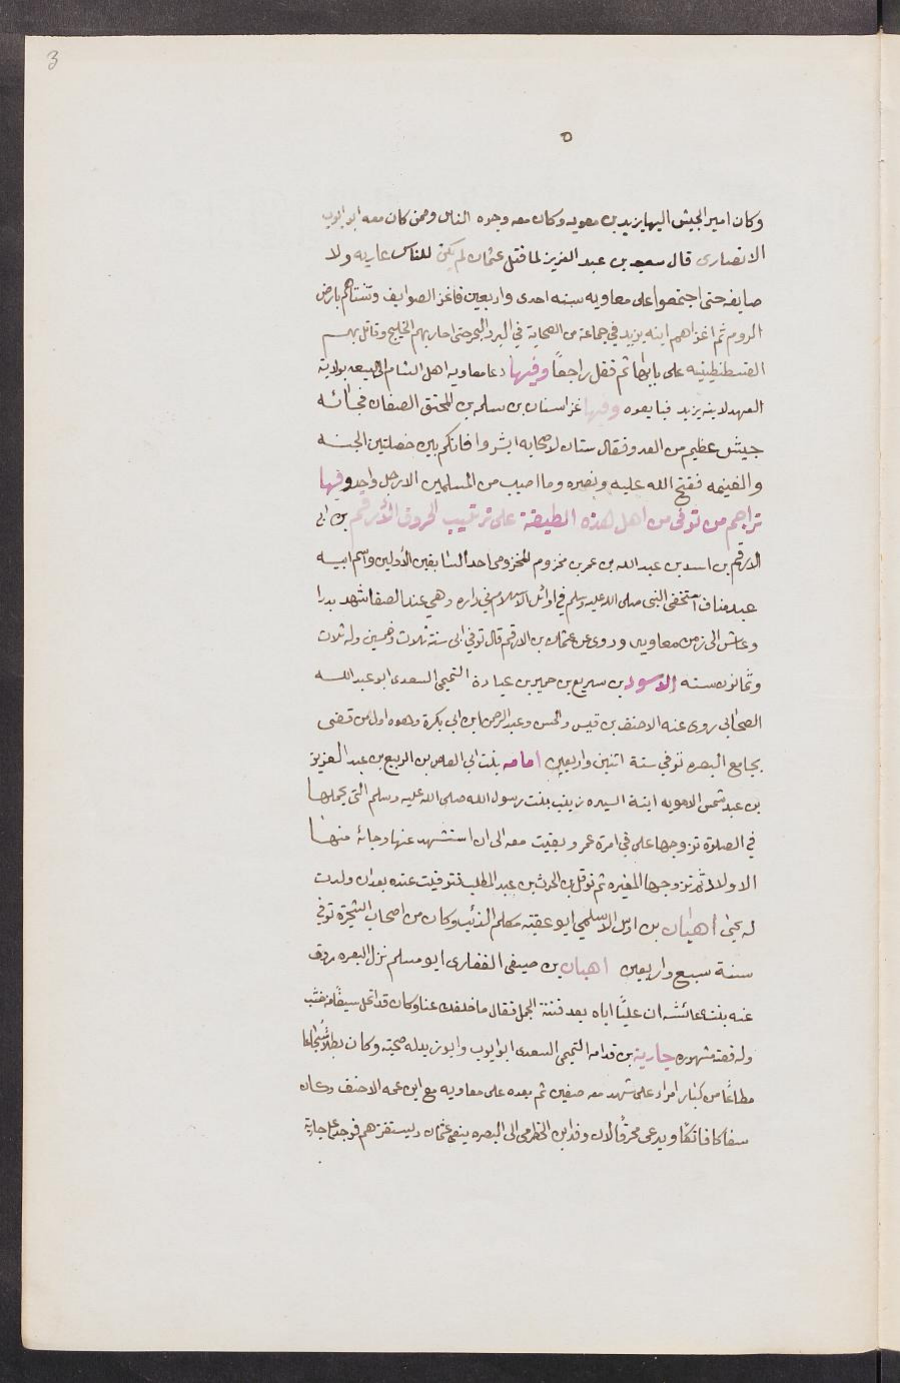 3
٥
وكان امير الجيش اليها يزيد بن معويه وكان معه وجوه الناس وممن كان معه ابو ايوب
الانصارى قال سعيد بن عبد العزيز لما قتل عثمان لم يكن للناس غازيه ولا
صايفه حتى اجتمعوا على معاويه سنه احدى واربعين فاغز الصوايف وشتاهم بارض
الروم ثم اغزاهم ابنه يزيد فى جماعة من الصحابة في البر والبحر حتى اجاز بهم الخليج وقاتل بهم
القسطنطينيه على بابها ثم قفل راجعا وفيها دعا معاويه اهل الشام الى البيعه بولاية
العهد لابنه يزيد فبايعوه وفيها غزا سنان بن سلمه بن المحنق الصفان فجائه
جيش عظيم من العدو فقال سنان لاصحابه ابشروا فانكم بين خصلتين الجنه
والغنيمه ففتح الله عليه ونصره وما اصيب من المسلمين الا رجل واحد وفيها
تراجم من توفى من اهل هذه الطبقة على ترتيب الحروف الأرقم بن ابى
الارقم بن اسد بن عبد الله بن عمر بن مخزوم المخزومى احد السابقين الأولين واسم ابيه
عبد مناف استخفى النبى صلى الله عليه وسلم فى اوائل الاسلام في داره وهى عند الصفا شهد بدرا
وعاش الى زمن معاويه وروى عن عثمان بن الارقم قال توفى ابى سنة ثلاث وخمسين وله ثلاث
وثمانون سنه الاسود بن سريع بن حمير بن عبادة التميمى السعدى ابو عبد الله
الصحابى روى عنه الاحنف بن قيس والحسن وعبد الرحمن ابن ابى بكرة وهو اول من قضى
بجامع البصره توفي سنة اثنين واربعين امامه بنت ابى العاص بن الربيع بن عبد العزيز
بن عبد شمس الامويه ابنة السيده زينب بنت رسول الله صلى الله عليه وسلم التى يحملها
في الصلاة تزوجها على فى امرة عمر وبقيت معه الى ان استشهد عنها وجائه منها
الاولاد ثم تزوجها المغيره ثم نوفل بن الحرث بن عبد المطلب فتوفيت عنده بعد ان ولدت
له يحيى اهبان بن اوس الاسلمى ابو عقبه مكلم الذئب وكان من اصحاب الشجرة توفي
سنة سبع واربعين اهبان بن صيفى الغفارى ابو مسلم نزل البصره روت
عنه بنته عائشه ان عليّا اتاه بعد فتنة الجمل فقال ما خلفك عنا وكان قد اتخذ سيفا من خشب
وله قصة مشهوره جارية بن قدامه التميمى السعدى ابو ايوب وابو يزيد له صحبة وكان بطلا شجاعا
مطاعا من كبار امراء على شهد معه صفين ثم بعده على معاويه مع ابن عمه الاحنف وكان
سفاكا فاتكا ويدعى محرقا لان وفد ابن الحضرمى الى البصره ينعى عثمان ويستنفرهم فوجه على جارية